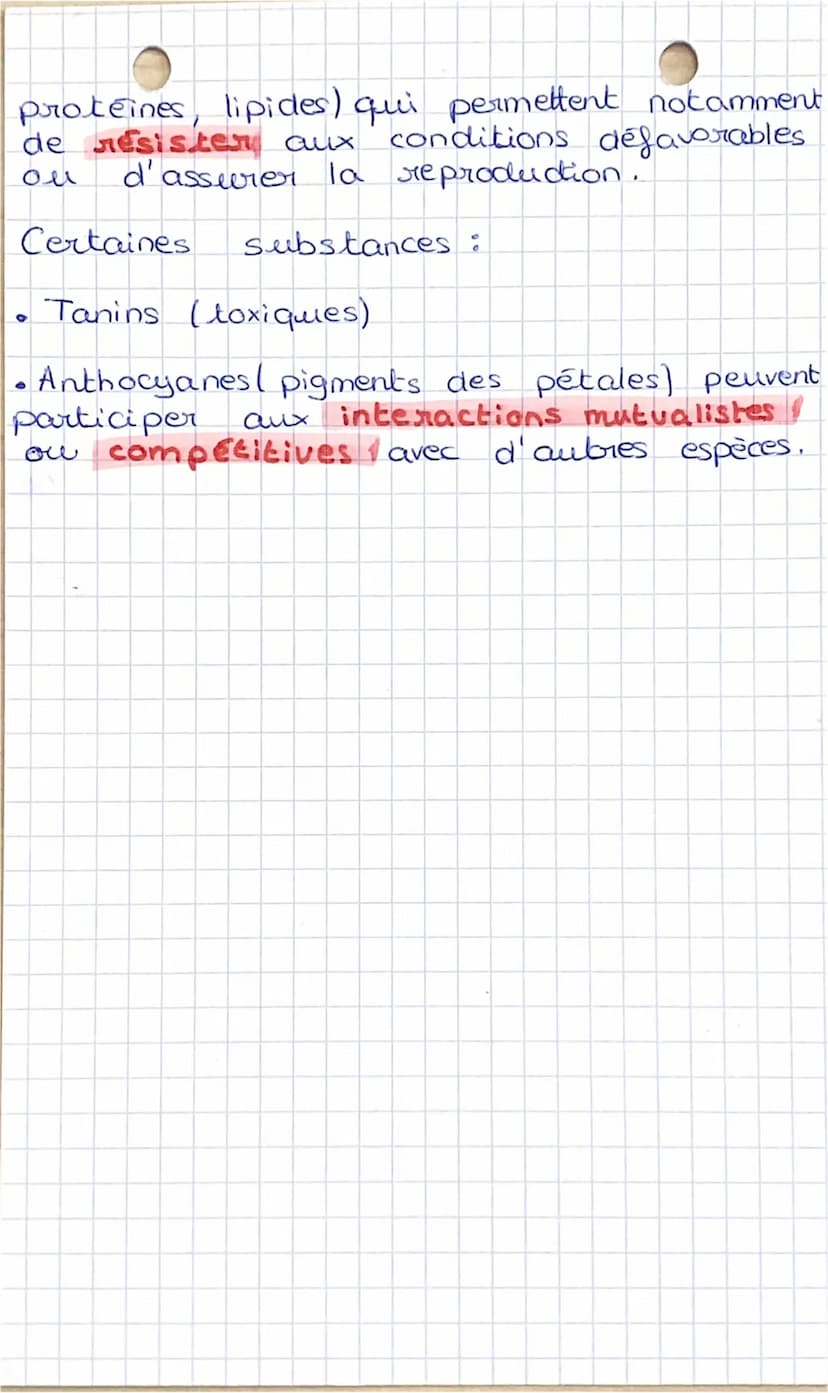 protéines, lipides) qui permettent notamment
de résister aux conditions défavorables
ou d'assurer la reproduction.
Certaines substances :
• Tanins (toxiques)
• Anthocyanes( pigments des pétales) peuvent
participer aux interactions mutualistes
ou compétitives avec d'autres espèces.